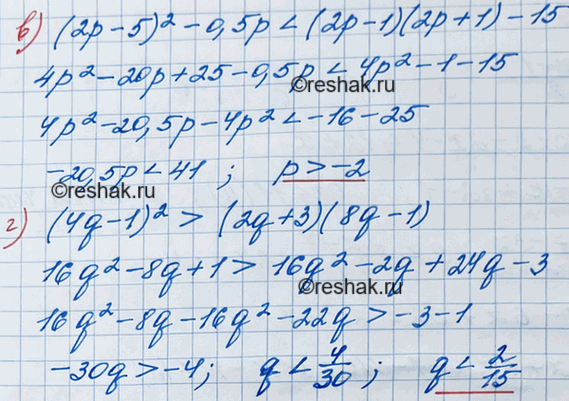 в) (2p-5)² - 0,5p < (2p-1)(2p+1) - 15
©reshak.ru
4p² - 20p + 25 - 0,5p < 4p² - 1 - 15
4p² - 20,5p - 4p² < -16 - 25
-20,5p < 41 ; p > -2
©reshak.ru
г) (4q-1)² > (2q+3)(8q-1)
16q² - 8q + 1 > 16q² - 2q + 24q - 3
©reshak.ru
16q² - 8q - 16q² - 22q > -3 - 1
-30q > -4 ; q < 4/30 ; q < 2/15